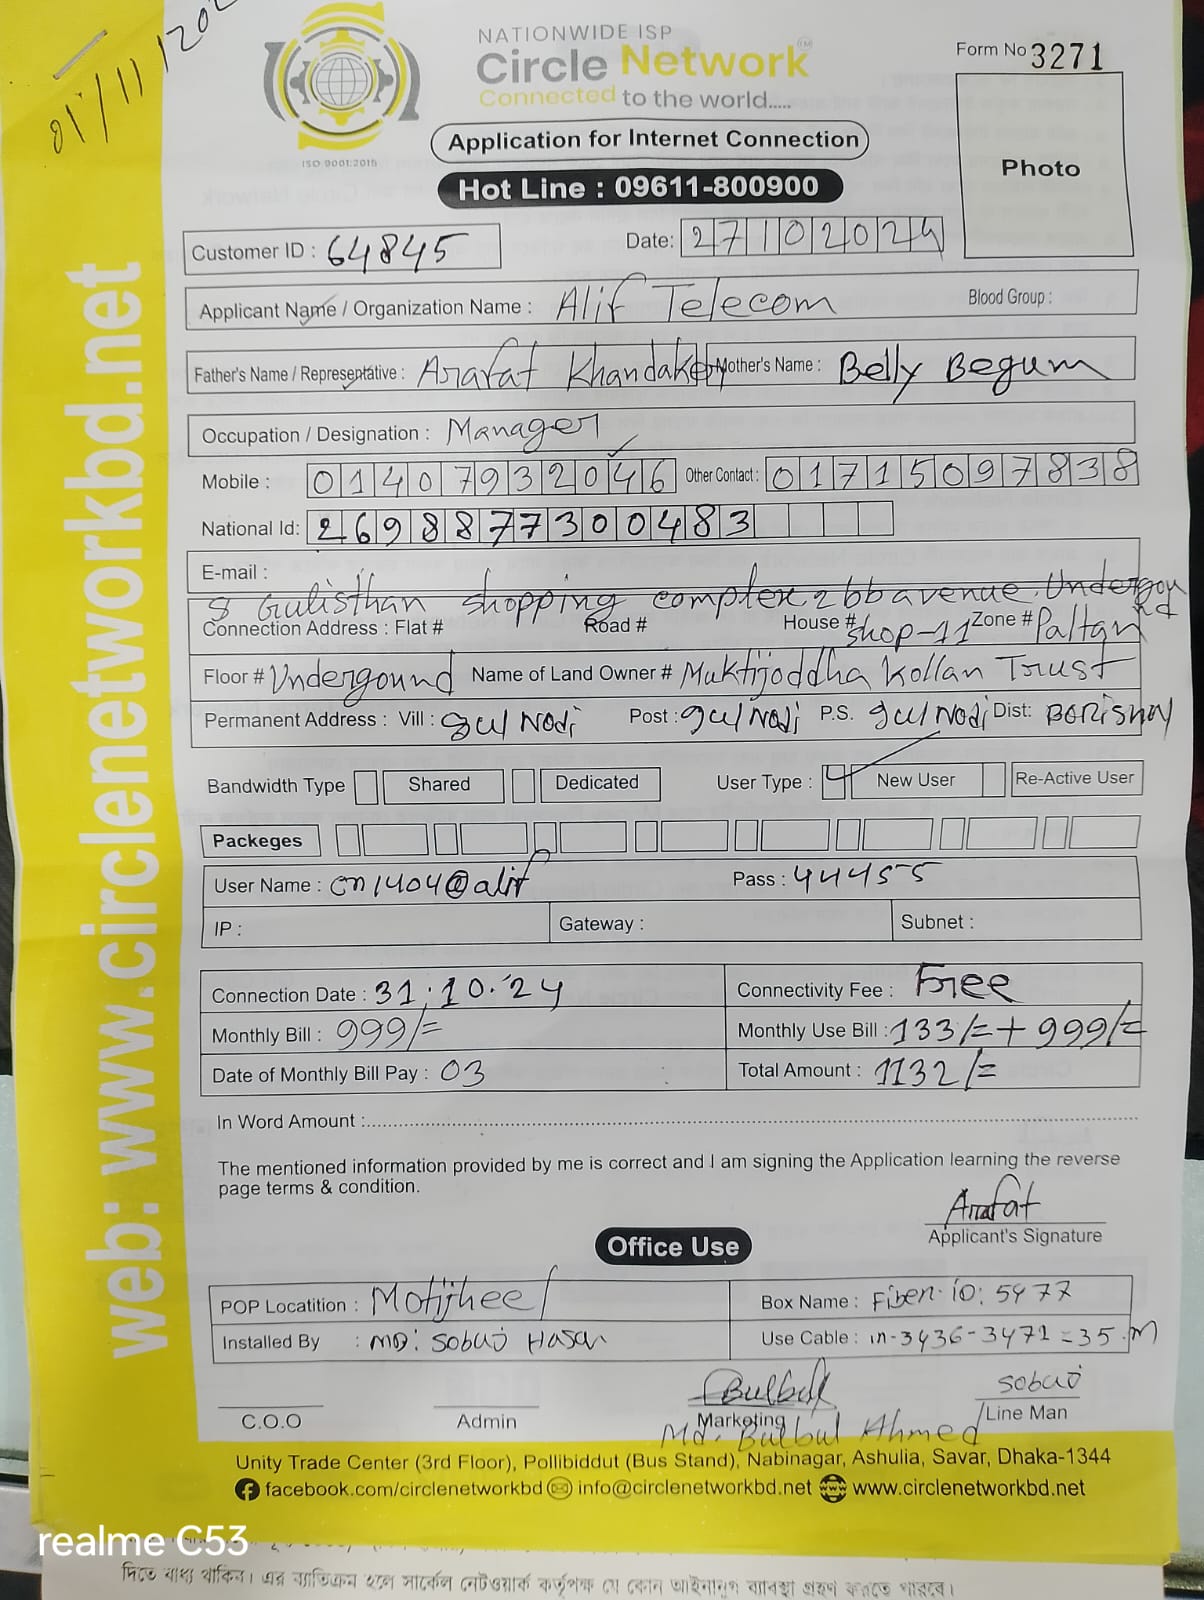 01/11/202
NATIONWIDE ISP
Circle Network
Connected to the world.....
ISO 9001:2015
Form No 3271
Photo
Application for Internet Connection
Hot Line : 09611-800900
Customer ID : 64845
Date: 27102024
Applicant Name / Organization Name : Alif Telecom Blood Group :
Father's Name / Representative : Arafat Khandaker Mother's Name : Belly Begum
Occupation / Designation : Manager
Mobile : 01407932046 Other Contact : 01715097838
National Id: 2698877300483
E-mail :
8 Gulisthan shopping complex 2 bb avenue. Undergound
Connection Address : Flat # Road # House # shop-11 Zone # Paltan
Floor # Undergound Name of Land Owner # Muktijoddha Kollan Trust
Permanent Address : Vill : gul Nodi Post : gul Nodi P.S. gul Nodi Dist: Borishal
Bandwidth Type Shared Dedicated User Type : New User Re-Active User
Packeges
User Name : cn1404@alif Pass : 44455
IP : Gateway : Subnet :
Connection Date : 31.10.24 Connectivity Fee : Free
Monthly Bill : 999/= Monthly Use Bill : 133/= + 999/=
Date of Monthly Bill Pay : 03 Total Amount : 1132/=
In Word Amount :
The mentioned information provided by me is correct and I am signing the Application learning the reverse
page terms & condition.
Arafat
Applicant's Signature
Office Use
POP Locatition : Motijheel Box Name : Fiber iD: 5477
Installed By : MD: Sobuj Hasan Use Cable : in-3436-3471 = 35.m
Bulbul sobuj
C.O.O Admin Marketing Line Man
Md. Bulbul Ahmed
Unity Trade Center (3rd Floor), Pollibiddut (Bus Stand), Nabinagar, Ashulia, Savar, Dhaka-1344
facebook.com/circlenetworkbd info@circlenetworkbd.net www.circlenetworkbd.net
web: www.circlenetworkbd.net
realme C53
দিতে বাধ্য থাকিব। এর ব্যতিক্রম হলে সার্কেল নেটওয়ার্ক কর্তৃপক্ষ যে কোন আইনানুগ ব্যবস্থা গ্রহণ করতে পারবে।